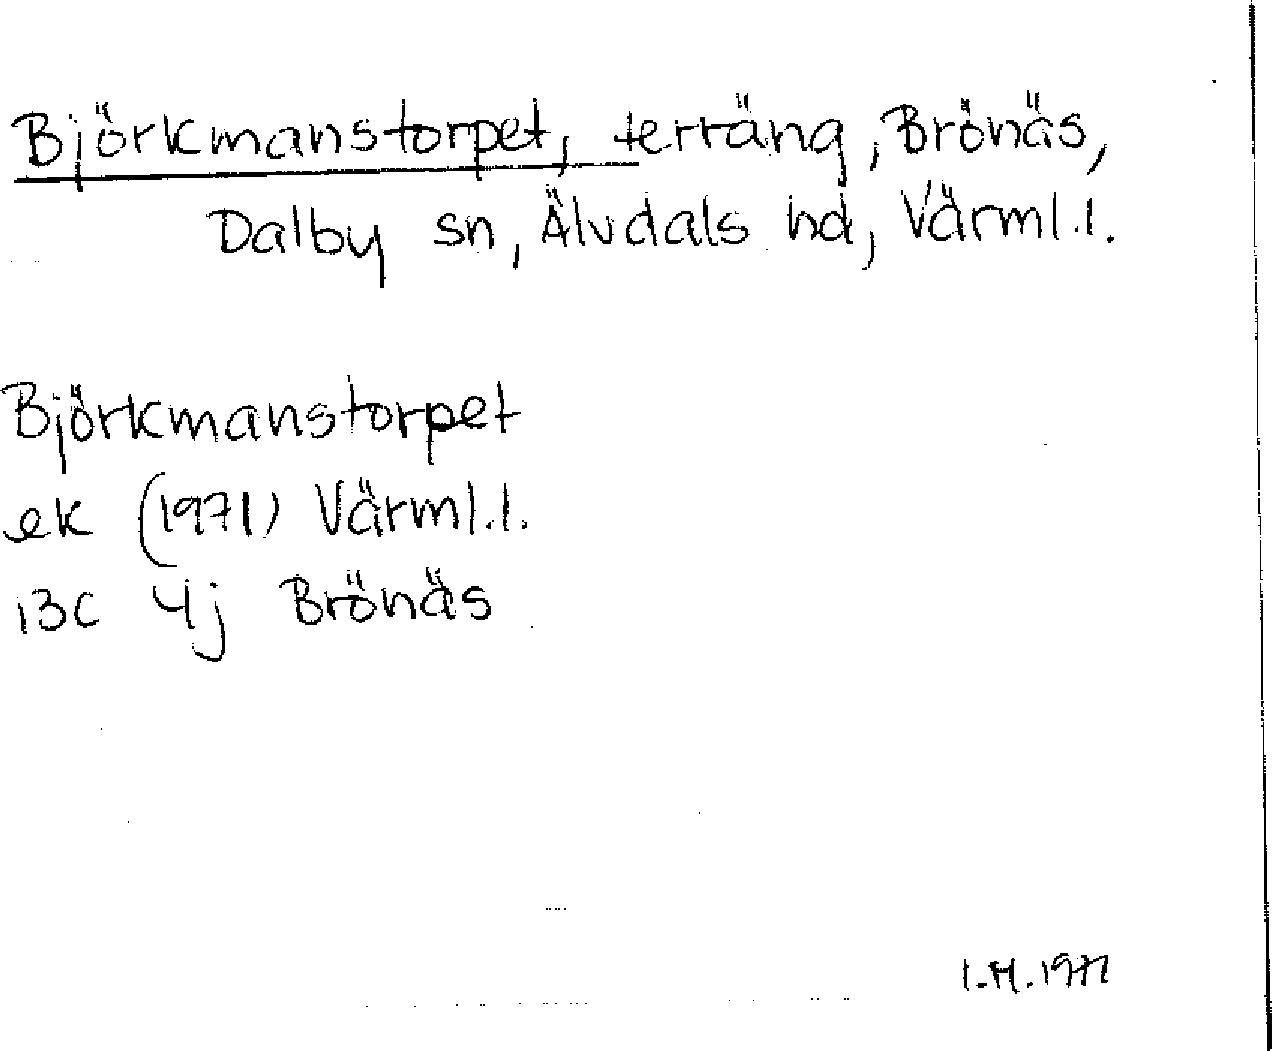 Björkmanstorpet, terräng, Brönäs,
Dalby sn, Älvdals hd, Värml.l.
Björkmanstorpet
ek (1971) Värml.l.
13C 4j Brönäs
I.M. 1977